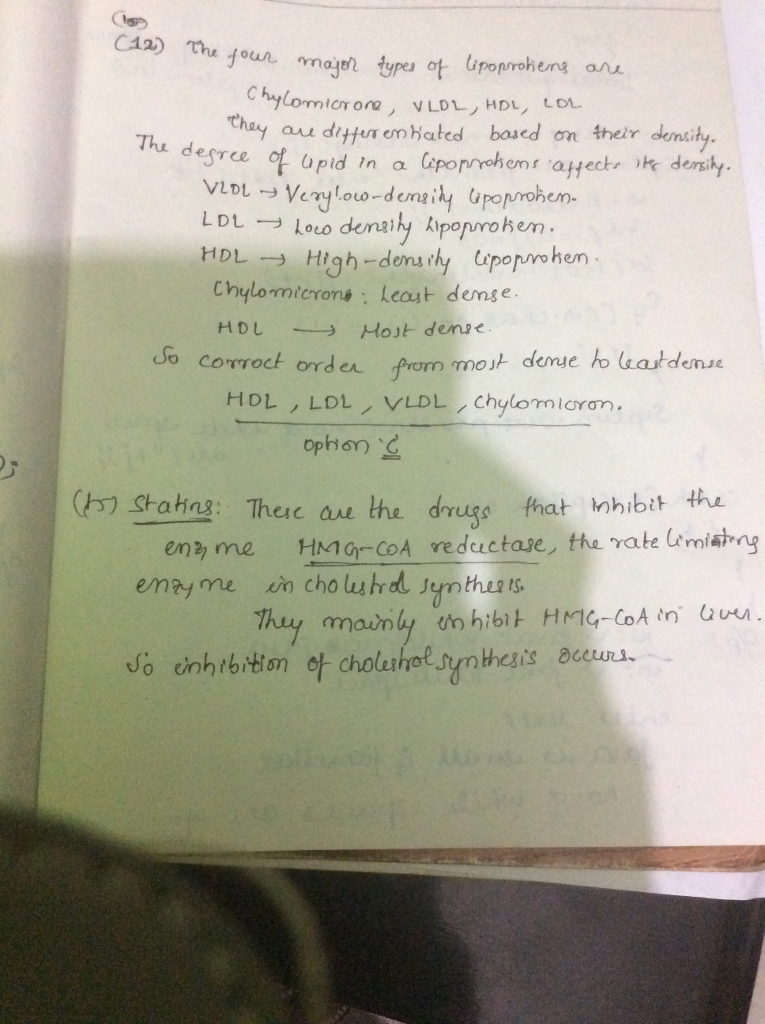 (12) The four major types of lipoproteins are
Chylomicrons, VLDL, HDL, LDL
They are differentiated based on their density.
The degree of lipid in a lipoproteins affects its density.
VLDL → Very low-density lipoprotien.
LDL → Low density lipoprotien.
HDL → High-density lipoprotien.
Chylomicrons : Least dense.
HDL → Most dense.
So correct order from most dense to least dense
HDL, LDL, VLDL, Chylomicron.
option 'C'
Statins: These are the drugs that inhibit the
enzyme HMG-CoA reductase, the rate limiting
enzyme in cholestrol synthesis.
They mainly inhibit HMG-CoA in liver.
So inhibition of cholestrol synthesis occurs.